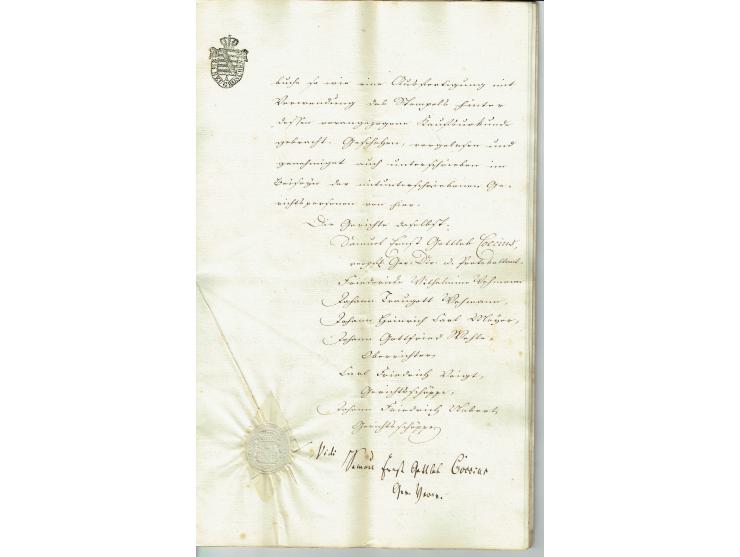 buche so wie eine Ausfertigung mit
Verwendung des Stempels hinter
dessen vorangezogene Kaufsurkunde
gebracht. Geschehen, vorgelesen und
genehmiget auch unterschrieben im
Beiseyn der mitunterschriebenen Ge-
richtspersonen von hier.
Die Gerichte daselbst.
Samuel Ernst Gottlob Coccius,
Ger. Dir. u. Protokollant.
Friedericke Wilhelmine
Johann Traugott
Johann Heinrich Carl Meyer,
Johann Gottfried
Oberrichter,
Carl Friedrich Voigt,
Gerichtsschöppe,
Johann Friedrich
Gerichtsschöppe
Vidi Samuel Ernst Gottlob Coccius
Ger.